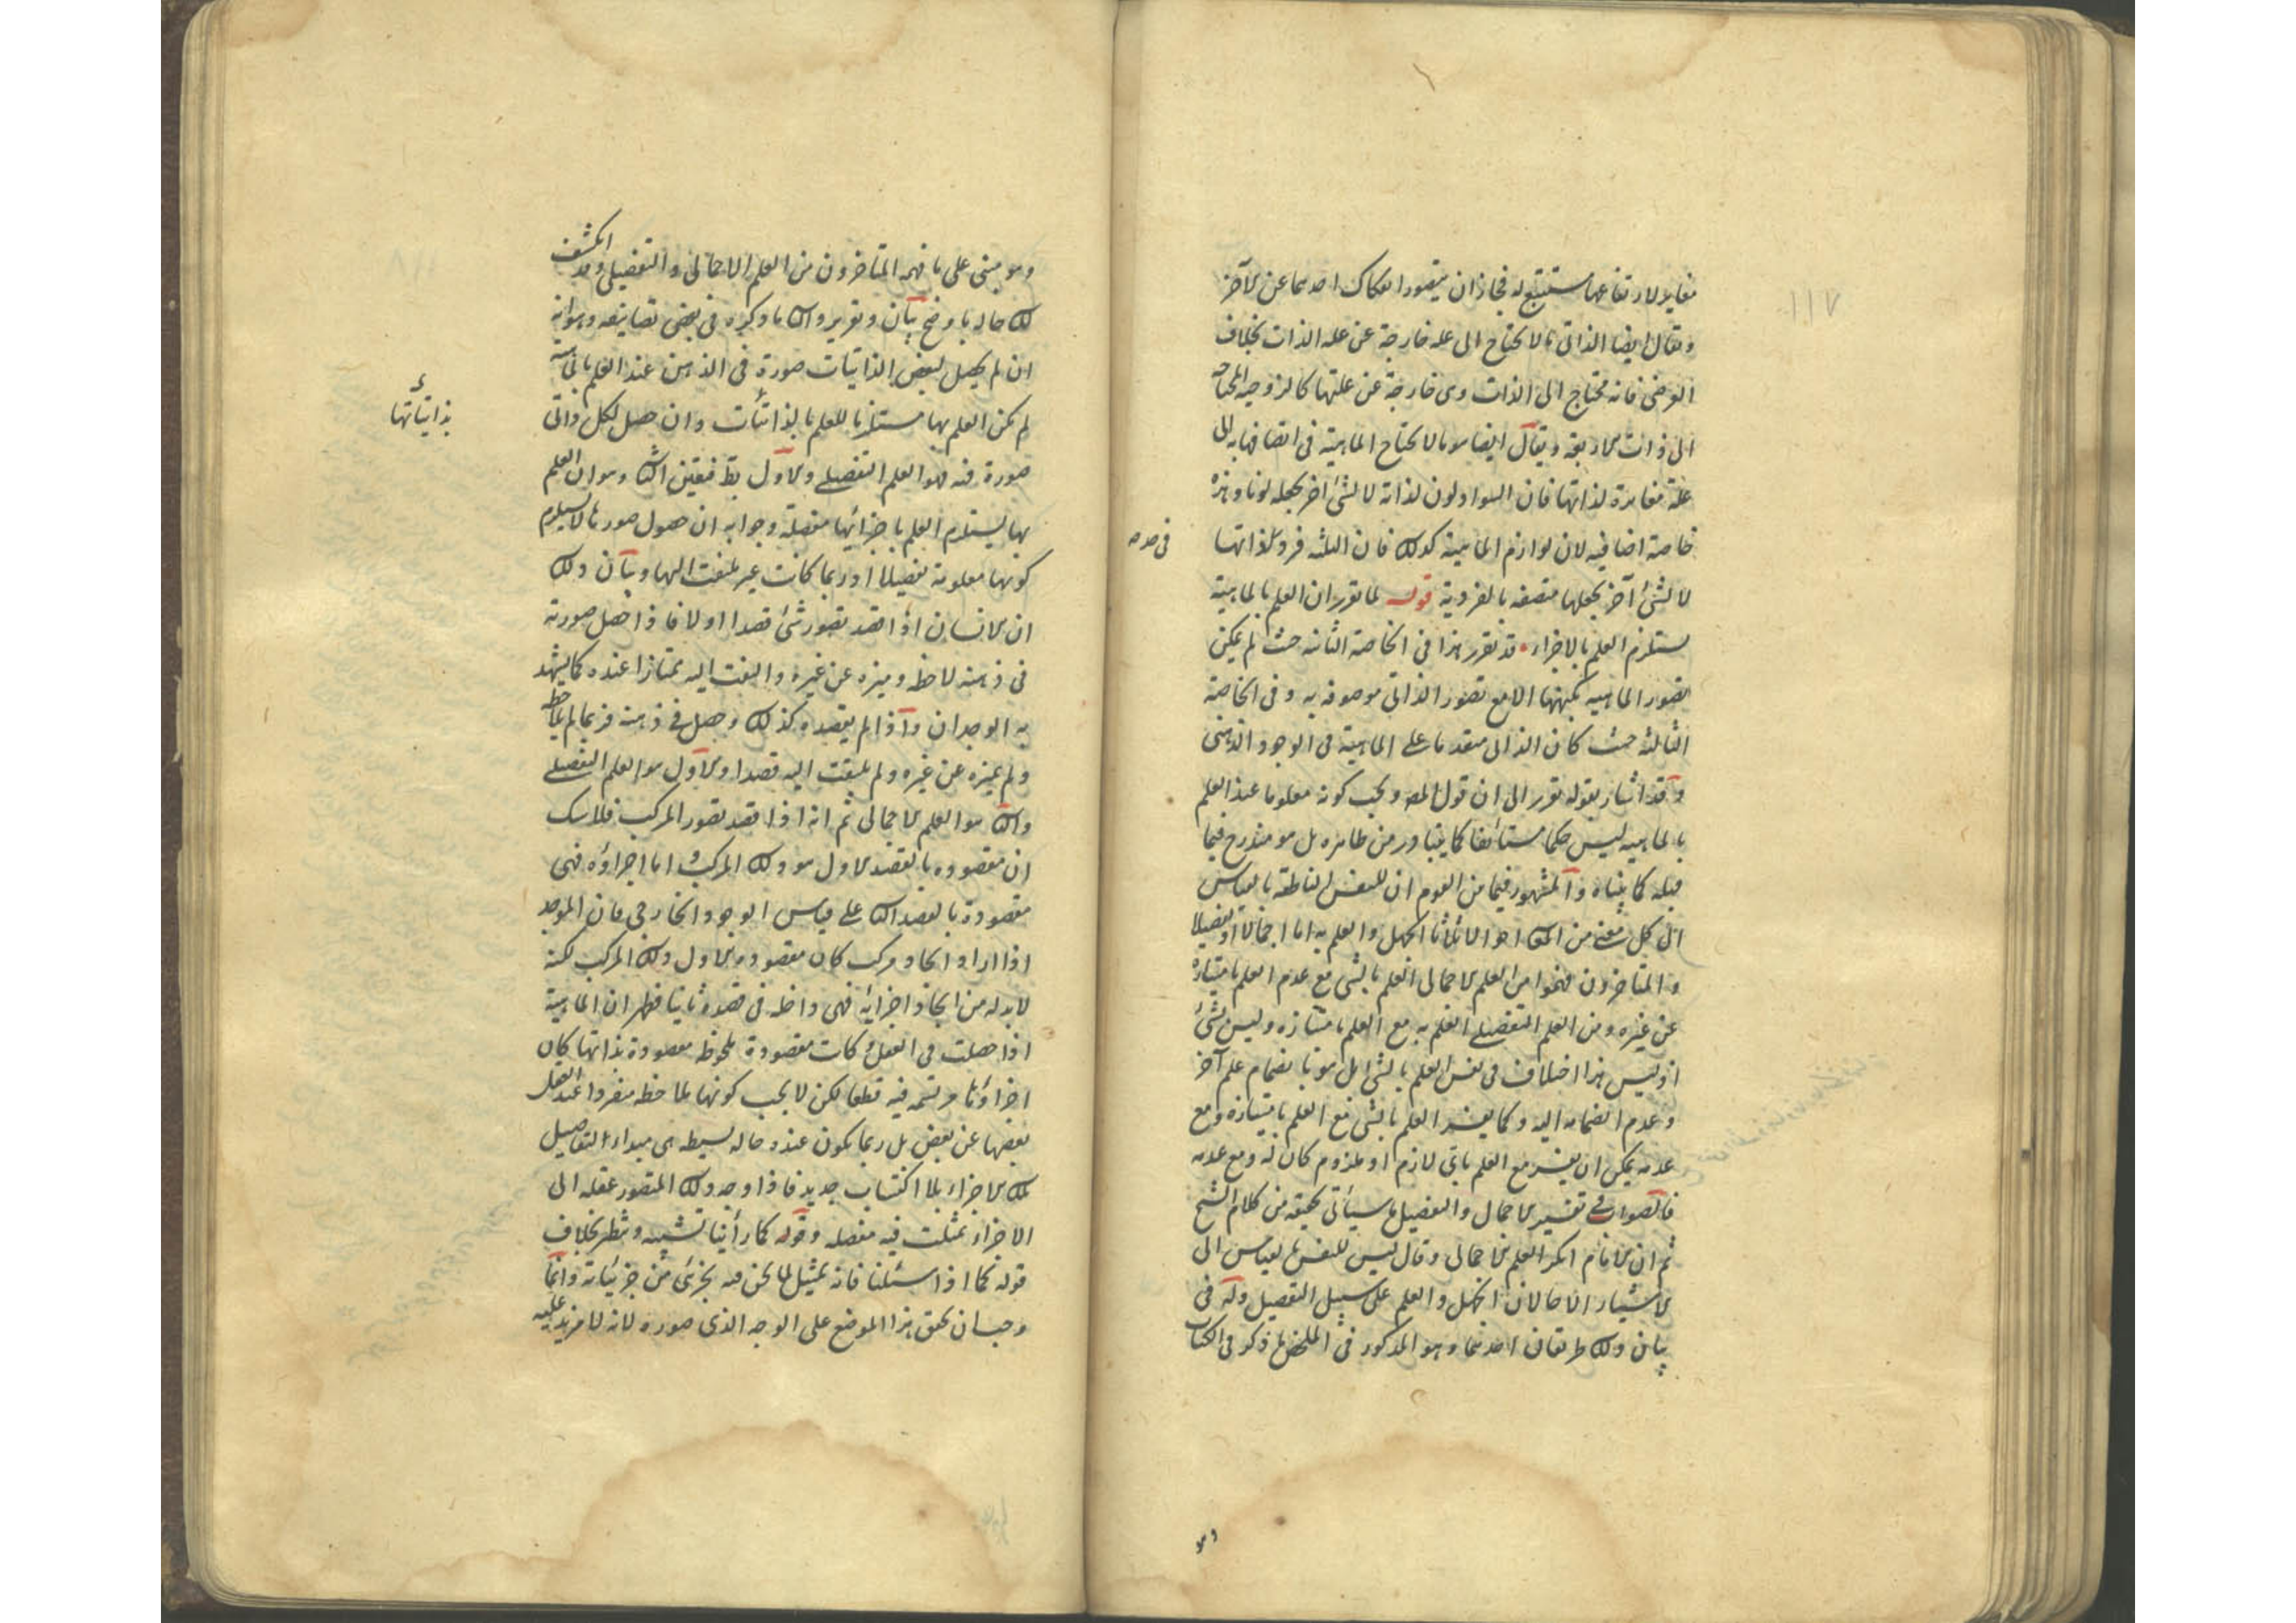 مغاير لارتفاعها مستتبع له فجاز ان يتصور انفكاك احدهما عن الآخر
ويقال ايضا الذاتى ما لا يحتاج الى علة خارجة عن علة الذات بخلاف
العرضى فانه محتاج الى الذات وهى خارجة عن علتها كالزوجية المحتاجة
الى ذات الاربعة ويقال ايضا هو ما لا يحتاج الماهية فى اتصافها به الى
علة مغايرة لذاتها فان السواد لون لذاته لا لشئ آخر يجعله لونا وهذه
خاصة اضافية لان لوازم الماهية كذلك فان الثلثة فرد لذاتها
فى حد
لا لشئ آخر يجعلها متصفة بالفردية قوله لما تقرر ان العلم بالماهية
يستلزم العلم بالاجزاء قد تقرر هذا فى الخاصة الثانية حيث لم يمكن
تصور الماهية بكنهها الا مع تصور الذاتى موصوفة به وفى الخاصة
الثالثة حيث كان الذاتى متقدما على الماهية فى الوجود الذهنى
وقد اشار بقوله تقرر الى ان قول المص ويجب كونه معلوما عند العلم
بالماهية ليس حكما مستأنفا كما يتبادر من ظاهره بل هو مندرج فيما
قبله كما بيناه والمشهور فيما من القوم ان للنفس الناطقة بالقياس
الى كل شئ من احوالا ثلاثا الجهل والعلم به اما اجمالا او تفصيلا
والمتاخرون فهموا من العلم الاجمالى العلم بالشئ مع عدم العلم بامتيازه
عن غيره ومن العلم التفصيلى العلم به مع العلم بامتيازه وليس بشئ
اذ ليس هذا اختلاف فى نفس العلم بالشئ بل هو بانضمام علم آخر
وعدم انضمامه اليه وكما يفسر العلم بالشئ مع العلم بامتيازه ومع
عدمه يمكن ان يفسر مع العلم باى لازم او ملزوم كان له ومع عدمه
فالصواب فى تفسير الاجمال والتفصيل ما سيأتى تحقيقه من كلام الشيخ
ثم ان الامام انكر العلم الاجمالى وقال ليس للنفس بالقياس الى
الاشياء الا حالان الجهل والعلم على سبيل التفصيل وله فى
بيان ذلك طريقان احدهما وهو المذكور فى الملخص ما ذكر فى الكتاب
وهو
وهو مبنى على ما فهمه المتاخرون من العلم الاجمالى والتفصيلى وقد انكشف
لك حاله باوضح بيان وتقرير والثانى ما ذكره فى بعض تصانيفه وهو انه
ان لم يحصل لبعض الذاتيات صورة فى الذهن عند العلم بالماهية
لم يكن العلم بها مستلزما للعلم بالذاتيات وان حصل لكل ذاتى
بذاتياتها
صورة فيه فهو العلم التفصيلى والاول بط فتعين الثانى وهو ان العلم
بها يستلزم العلم باجزائها مفصلة وجوابه ان حصول صورها لا يستلزم
كونها معلومة تفصيلا اذ ربما كانت غير ملتفت اليها وبيان ذلك
ان الانسان اذا قصد تصور شئ قصدا اولا فاذا حصل صورته
فى ذهنه لاحظه وميزه عن غيره والتفت اليه ممتازا عنده كما يشهد
به الوجدان واذا لم يقصده كذلك وحصل فى ذهنه فربما لم يلاحظه
ولم يميزه عن غيره ولم يلتفت اليه قصدا والاول هو العلم التفصيلى
والثانى هو العلم الاجمالى ثم انه اذا قصد تصور المركب فلا شك
ان مقصوده بالقصد الاول هو ذلك المركب واما اجزاؤه فهى
مقصودة بالقصد الثانى على قياس الوجود الخارجى فان الموجد
اذا اراد ايجاد مركب كان مقصوده الاول ذلك المركب لكنه
لا بد له من ايجاد اجزائه فهى داخلة فى قصده ثانيا فظهر ان الماهية
اذا حصلت فى العقل وكانت مقصودة ملحوظة مقصودة بذاتها كان
اجزاؤها مرتسمة فيه قطعا لكن لا يجب كونها ملاحظة منفردا عند العقل
بعضها عن بعض بل ربما يكون عنده حالة بسيطة هى مبداء التفاصيل
تلك الاجزاء بلا اكتساب جديد فاذا وجه ذلك المتصور عقله الى
الاجزاء تمثلت فيه مفصلة وقوله كما رأينا تشبيه وتنظير بخلاف
قوله كما اذا سئلنا فانه تمثيل لما نحن فيه بجزئى من جزئياته وانما
وجب ان نحقق هذا الموضع على الوجه الذى صوره لانه لا مزيد عليه